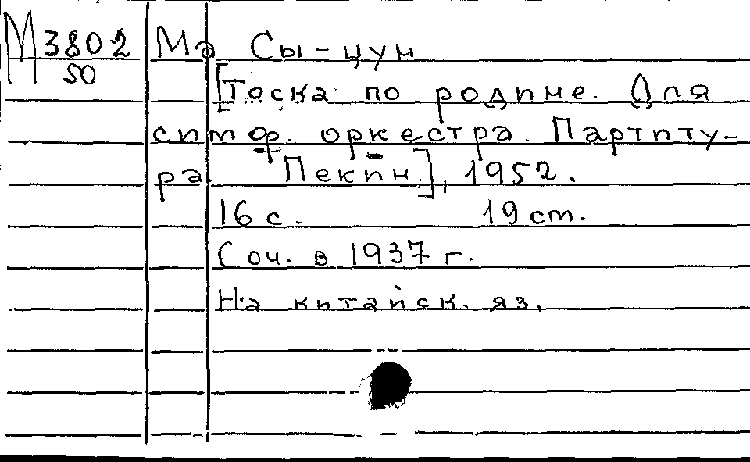 М 3802 Ма Сы-цун
50
[Тоска по родине. Для
симф. оркестра. Партиту-
ра. Пекин], 1952.
16 с. 19 cm.
Соч. в 1937 г.
На китайск. яз.